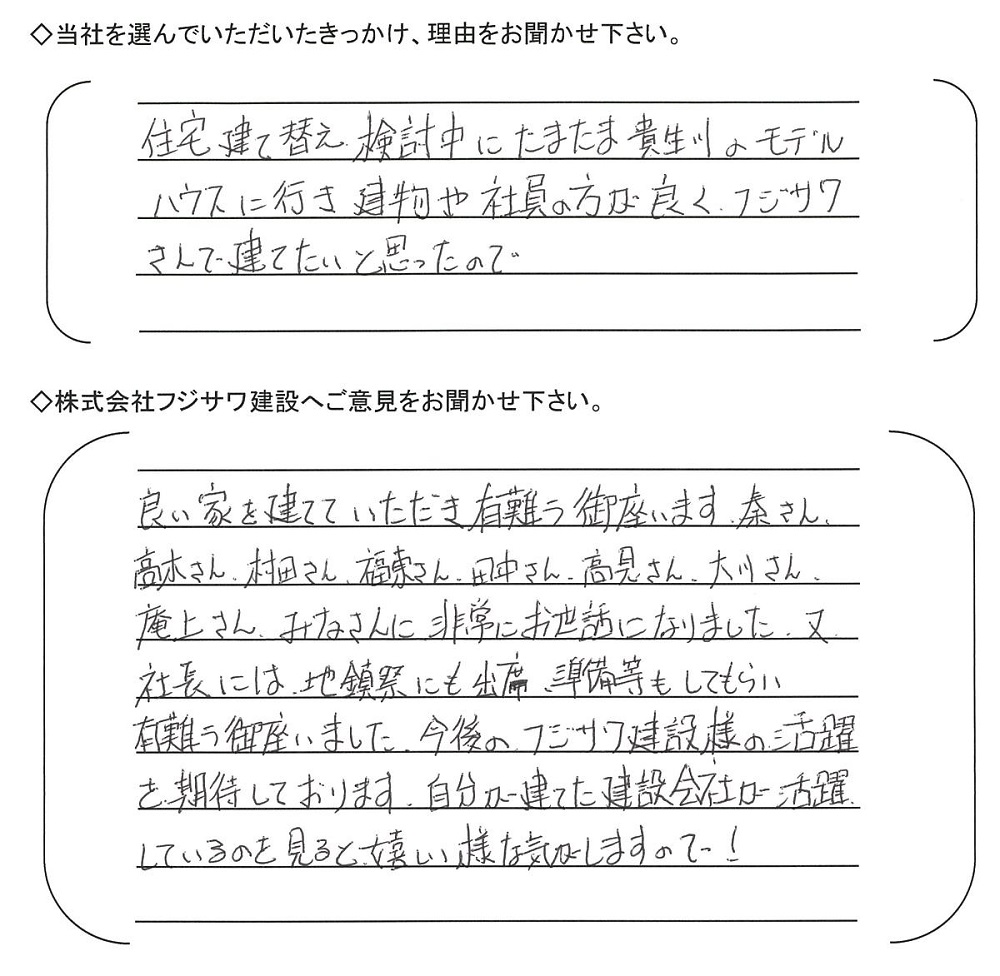 ◇当社を選んでいただいたきっかけ、理由をお聞かせ下さい。
住宅建て替え検討中にたまたま貴生川のモデル
ハウスに行き建物や社員の方が良く、フジサワ
さんで建てたいと思ったので
◇株式会社フジサワ建設へご意見をお聞かせ下さい。
良い家を建てていただき有難う御座います。秦さん、
高木さん、村田さん、福東さん、田中さん、高見さん、大川さん、
庵上さん、みなさんに非常にお世話になりました。又
社長には、地鎮祭にも出席、準備等もしてもらい
有難う御座いました。今後の、フジサワ建設様の活躍
を期待しております。自分が建てた建設会社が活躍
しているのを見ると、嬉しい様な気がしますので!